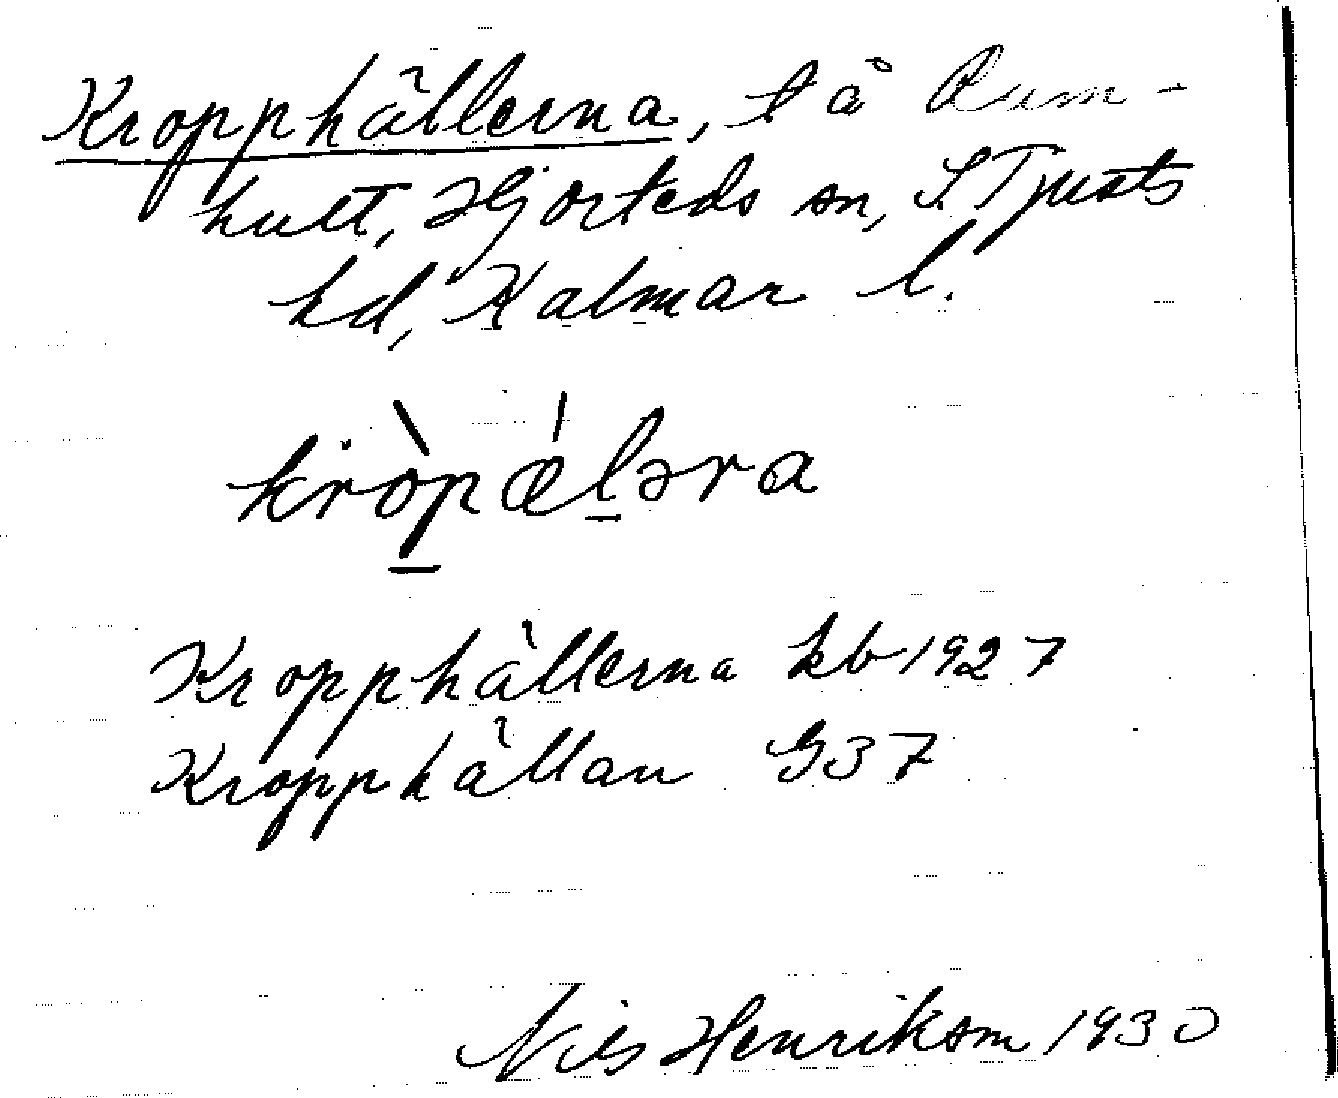 Kropphällerna, t å Rum-
hult, Hjorteds sn, S Tjusts
hd, Kalmar l.
kròpǽlərа
Kropphällerna kb 1927
Kropphällan G37
Nils Henrikson 1930